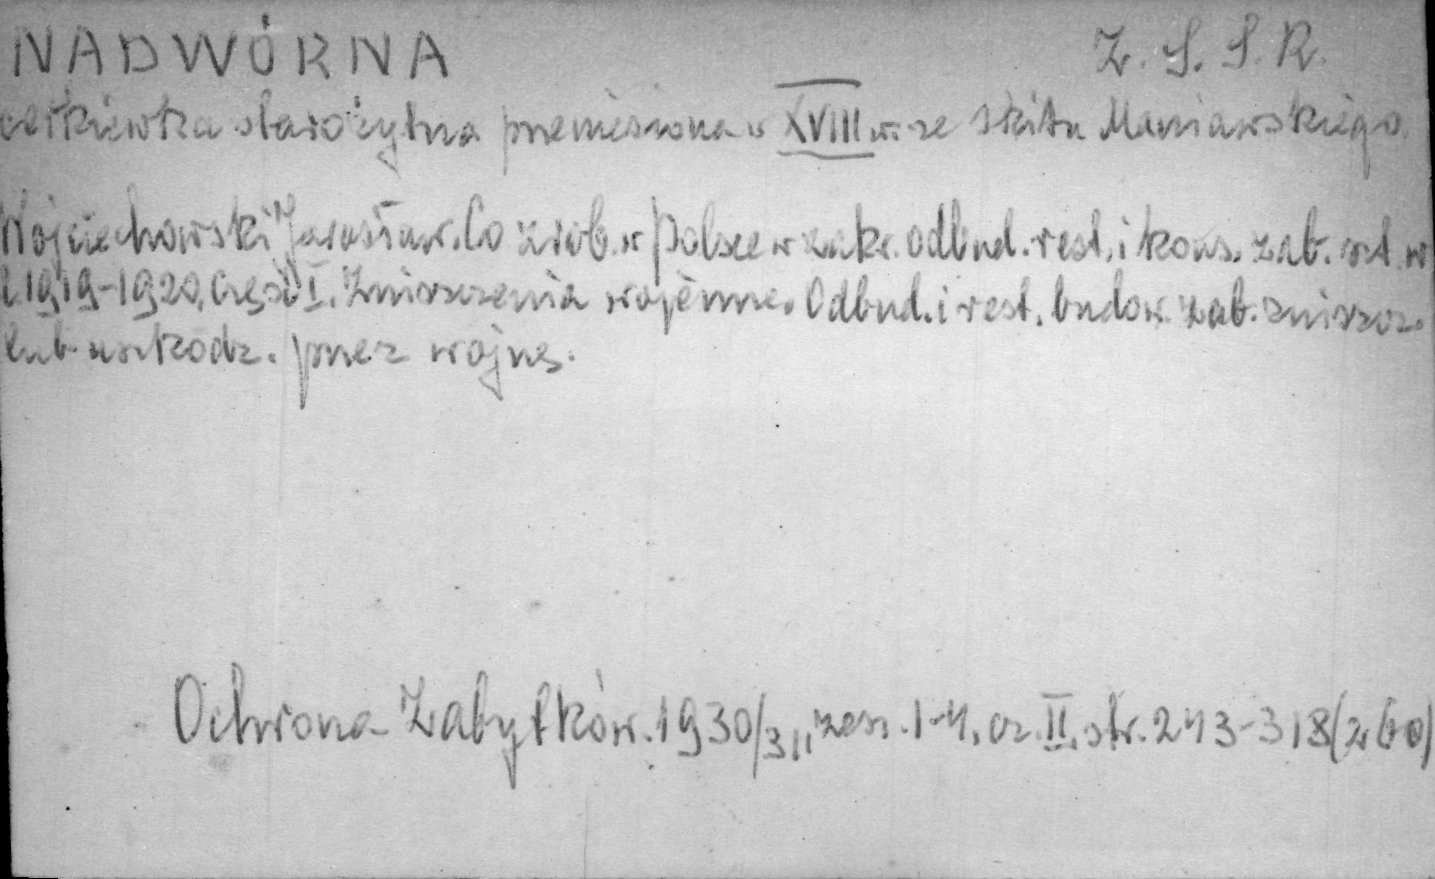 NADWÓRNA Z. S. S. R.
cerkiewka starożytna przeniesiona w XVIII w. ze skitu Maniawskiego
Wojciechowski Jarosław. Co zrob. w Polsce w zakr. odbud. rest. i kons. zab. szt. w
l. 1919-1920, Część I. Zniszczenia wojenne. Odbud. i rest. budow. zab. zniszcz.
lub uszkodz. przez wojnę.
Ochrona Zabytków. 1930/31, zesz. 1-4, cz. II, str. 243-318 (260)